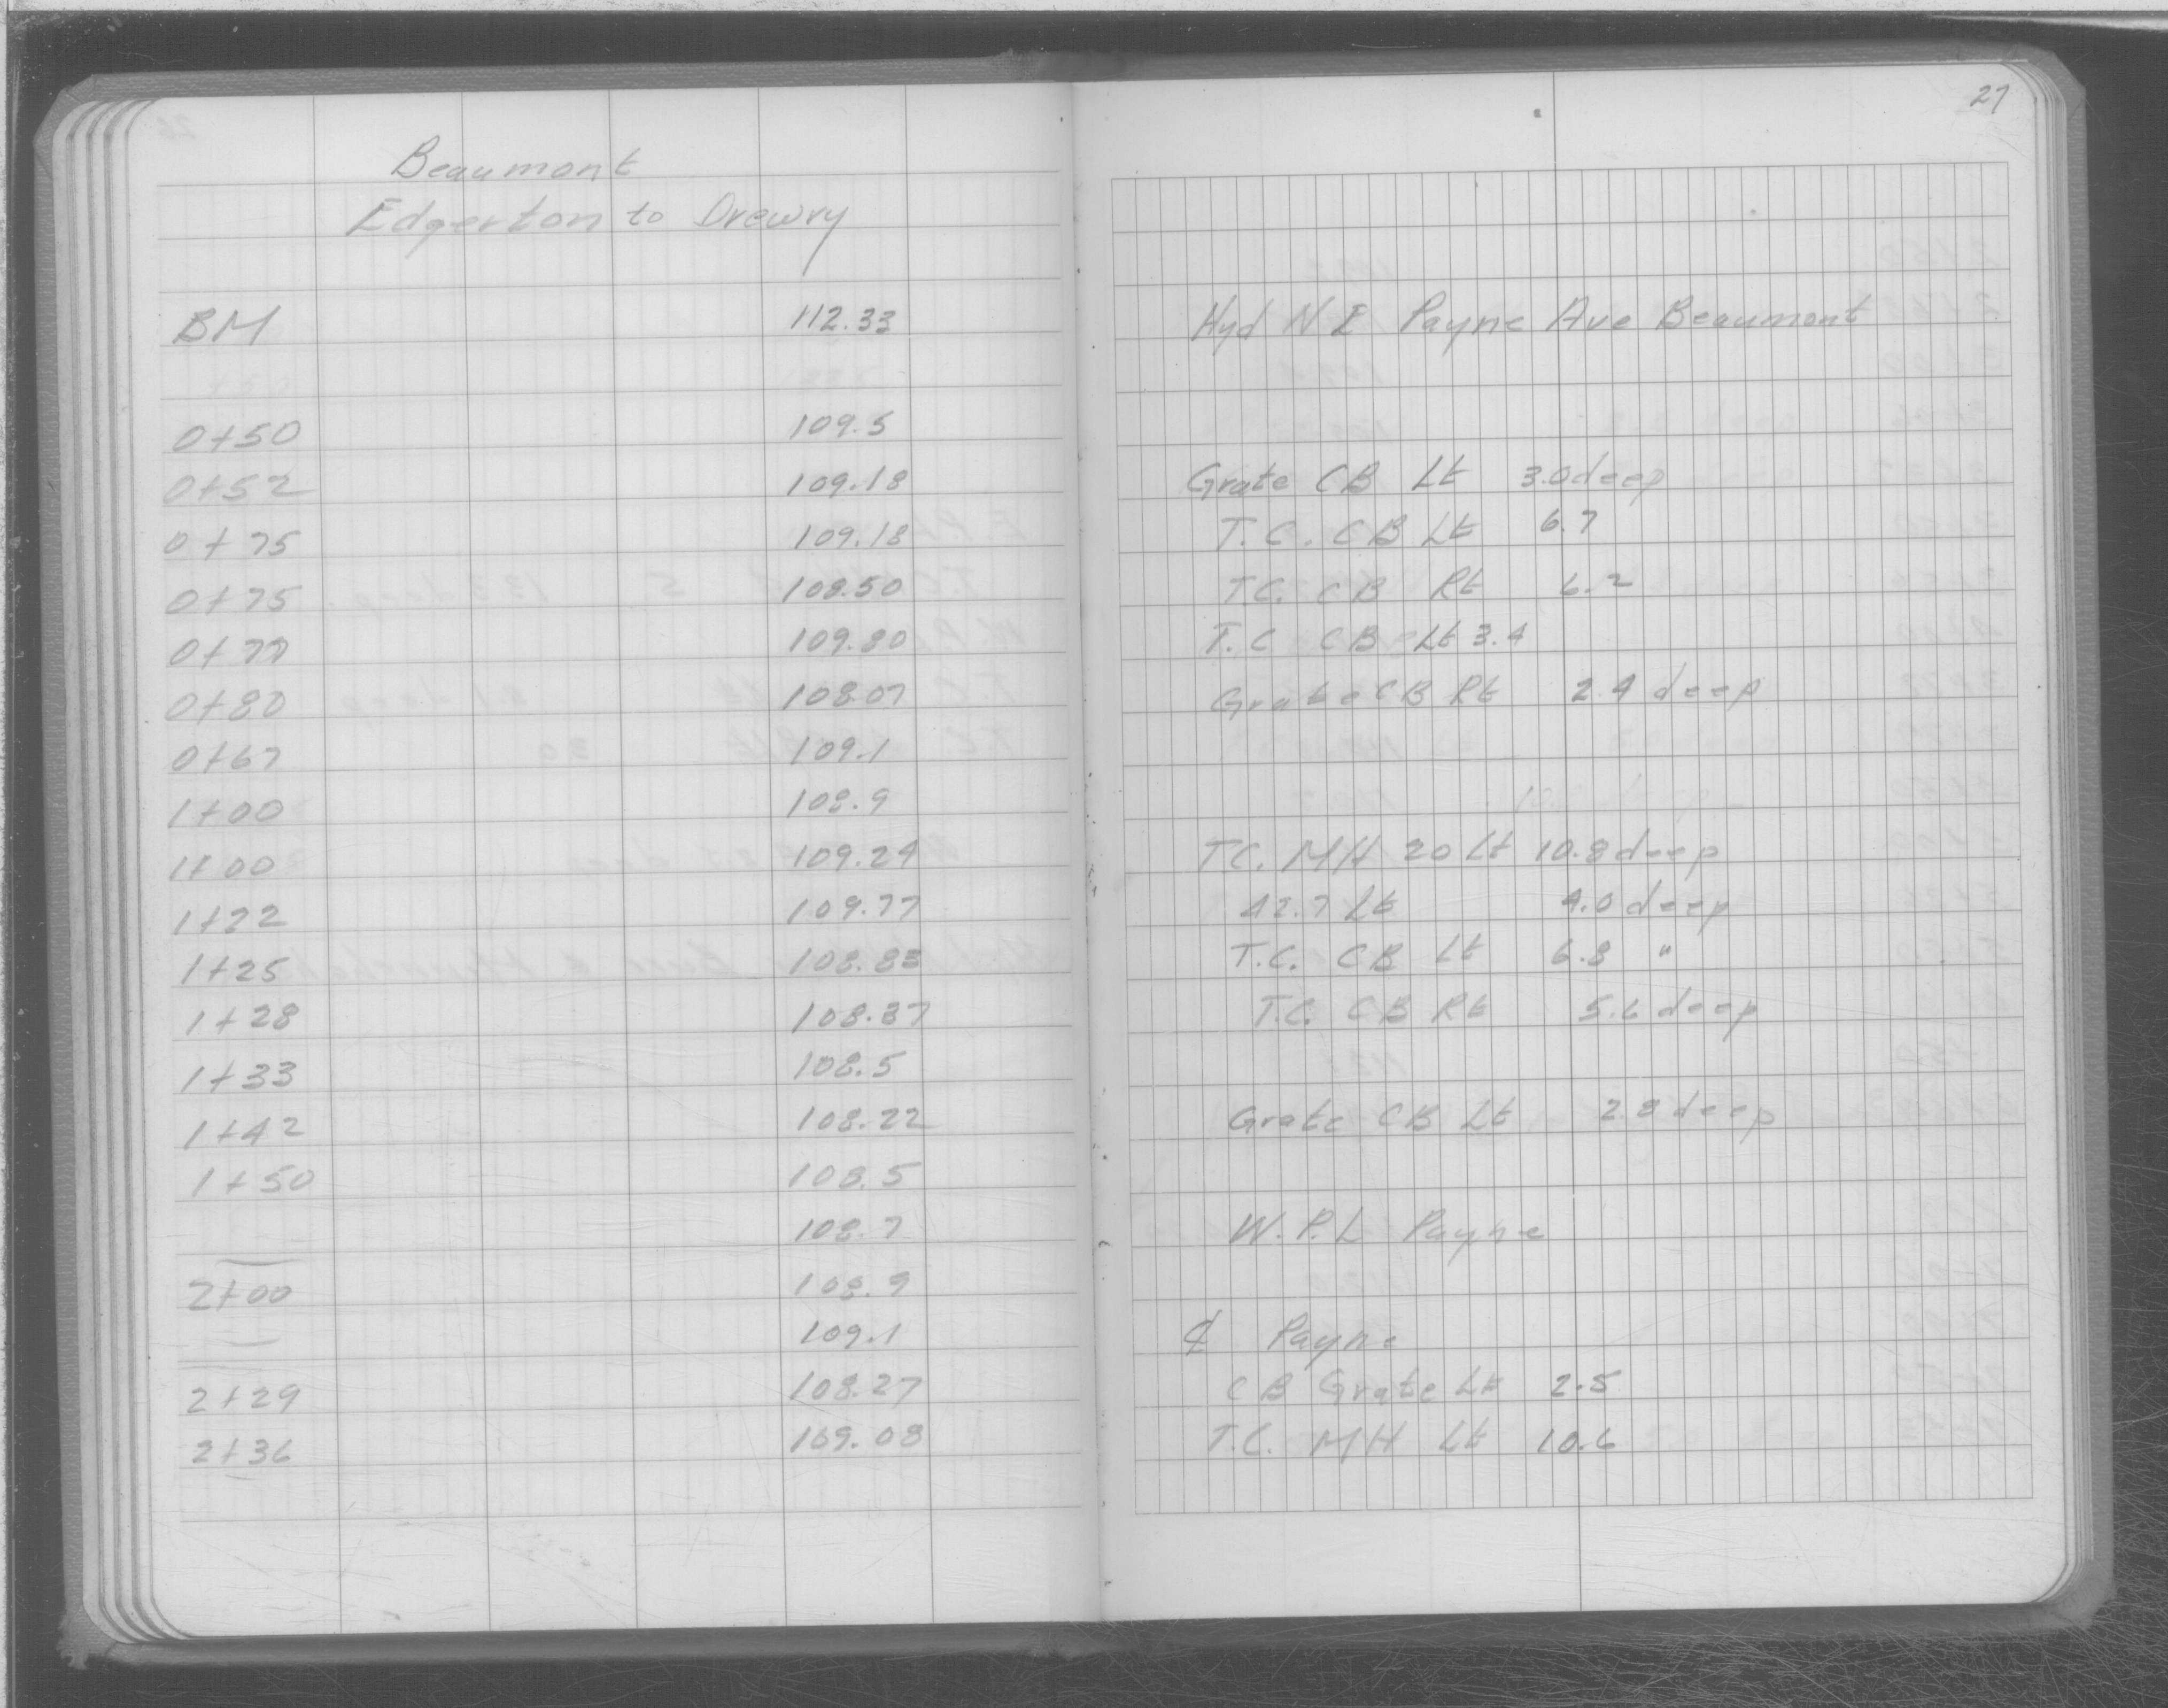 27
Beaumont
Edgerton to Drewry
BM 112.33 Hyd N E Payne Ave Beaumont
0+50 109.5
0+52 109.18 Grate CB Lt 3.0 deep
0+75 109.18 T.C. CB Lt 6.7
0+75 108.50 T.C. CB Rt 6.2
0+77 109.80 T.C CB Lt 3.4
0+80 108.07 Grate CB Rt 2.4 deep
0+67 109.1
1+00 108.9
1+00 109.24 T.C. MH 20 Lt 10.8 deep
1+22 109.77 42.7 Lt 4.0 deep
1+25 108.83 T.C. CB Lt 6.8 "
1+28 108.37 T.C. CB Rt 5.6 deep
1+33 108.5
1+42 108.22 Grate CB Lt 2.8 deep
1+50 108.5
108.7 W.P.L Payne
2+00 108.9
109.1 ℄ Payne
2+29 108.27 CB Grate Lt 2.5
2+36 109.08 T.C. MH Lt 10.6